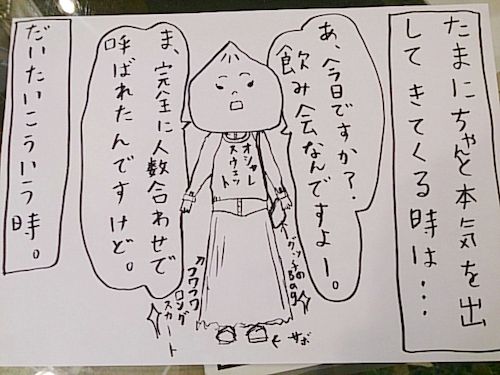 たまにちゃんと本気を出
してきてくる時は・・・
あ、今日ですか?
飲み会なんですよー。
ま、完全に人数合わせで
呼ばれたんですけど。
オシャレ
スウェット
グッチのBag
フワフワ
ロング
スカート
サボ
だいたいこういう時。